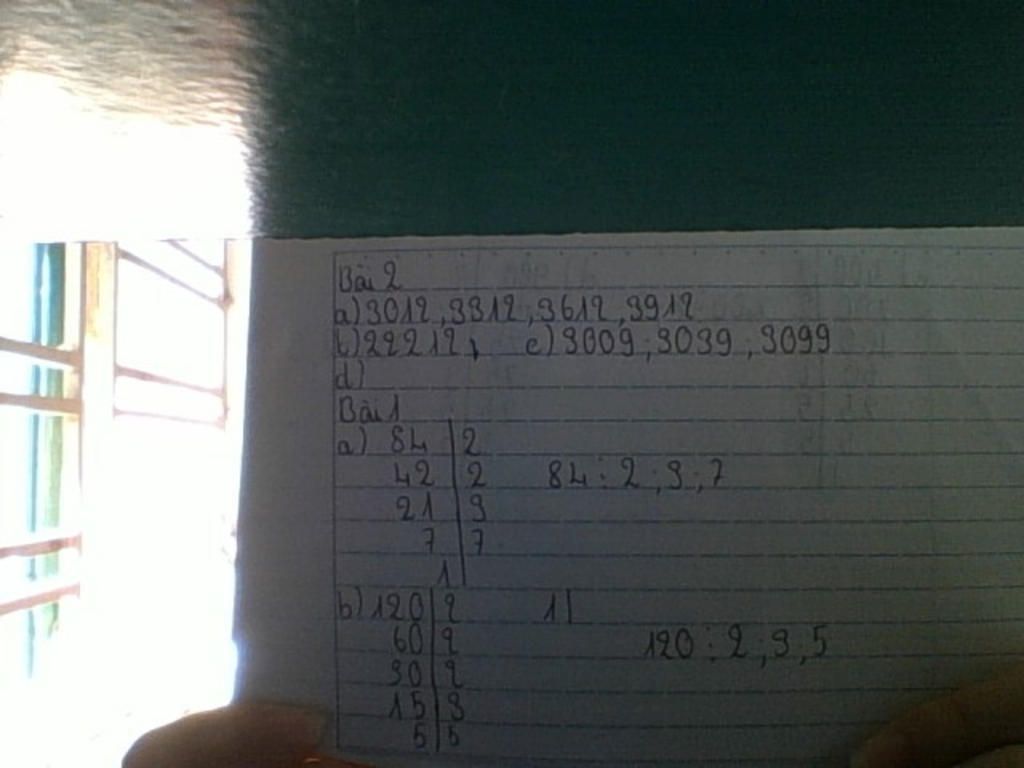 Bài 2
a) 3012, 3312, 3612, 3912
b) 22212, c) 3009; 3039; 3099
d)
Bài 1
a) 84 | 2
42 | 2 84 : 2; 3; 7
21 | 3
7 | 7
1 |
b) 120 | 2 1 |
60 | 2 120 : 2; 3; 5
30 | 2
15 | 3
5 | 5